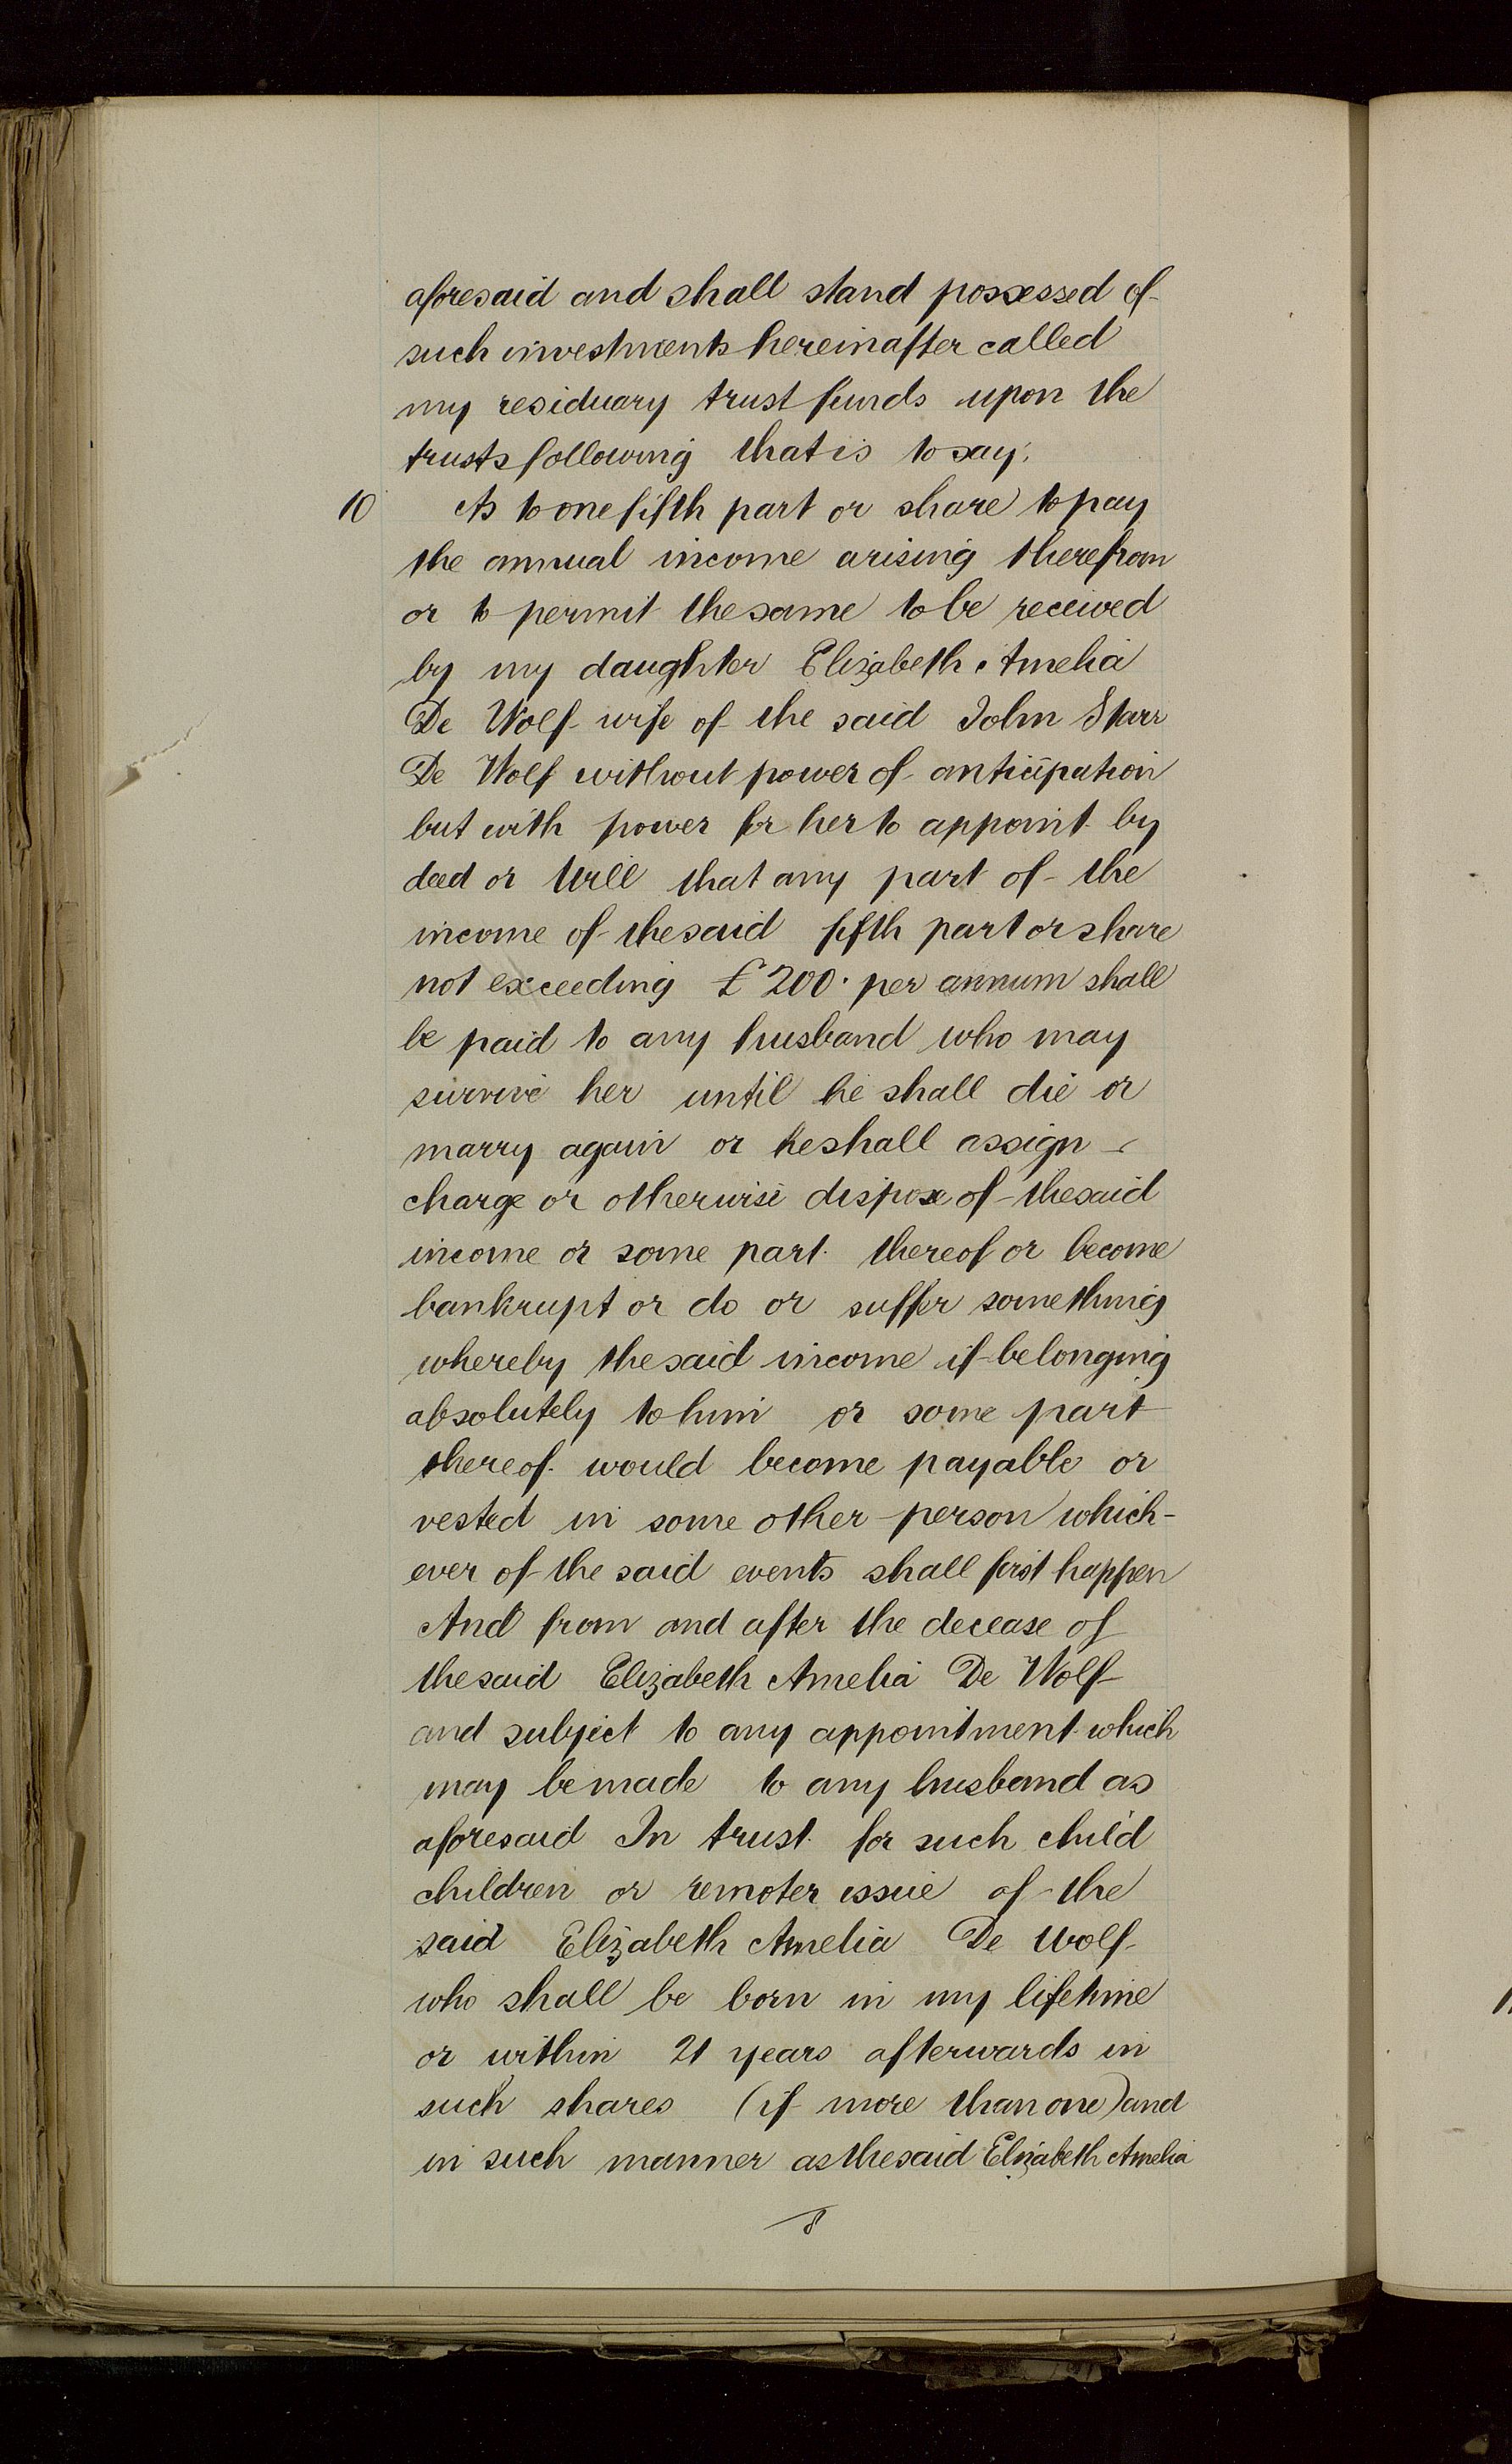 aforesaid and shall stand possessed of
such investments hereinafter called
my residuary trust funds upon the
trusts following that is to say:
10 As to one fifth part or share to pay
the annual income arising therefrom
or to permit the same to be received
by my daughter Elizabeth Amelia
De Wolf wife of the said John Starr
De Wolf without power of anticipation
but with power for her to appoint by
deed or Will that any part of the
income of the said fifth part or share
not exceeding £200. per annum shall
be paid to any husband who may
survive her until he shall die or
marry again or he shall assign
charge or otherwise dispose of the said
income or some part thereof or become
bankrupt or do or suffer something
whereby the said income if belonging
absolutely to him or some part
thereof would become payable or
vested in some other person which-
ever of the said events shall first happen
And from and after the decease of
the said Elizabeth Amelia De Wolf
and subject to any appointment which
may be made to any husband as
aforesaid In trust for such child
children or remoter issue of the
said Elizabeth Amelia De Wolf
who shall be born in my lifetime
or within 21 years afterwards in
such shares (if more than one) and
in such manner as the said Elizabeth Amelia
8